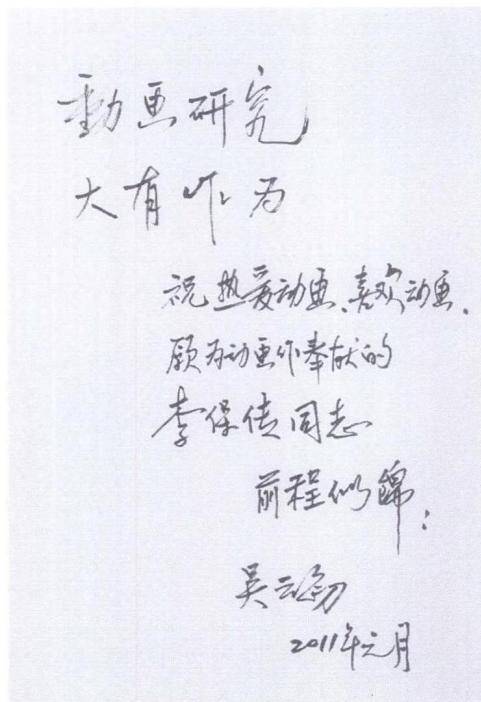 動画研究
大有作为
祝热爱动画、喜欢动画、
愿为动画作奉献的
李保传同志
前程似錦:
吴云初
2011年元月